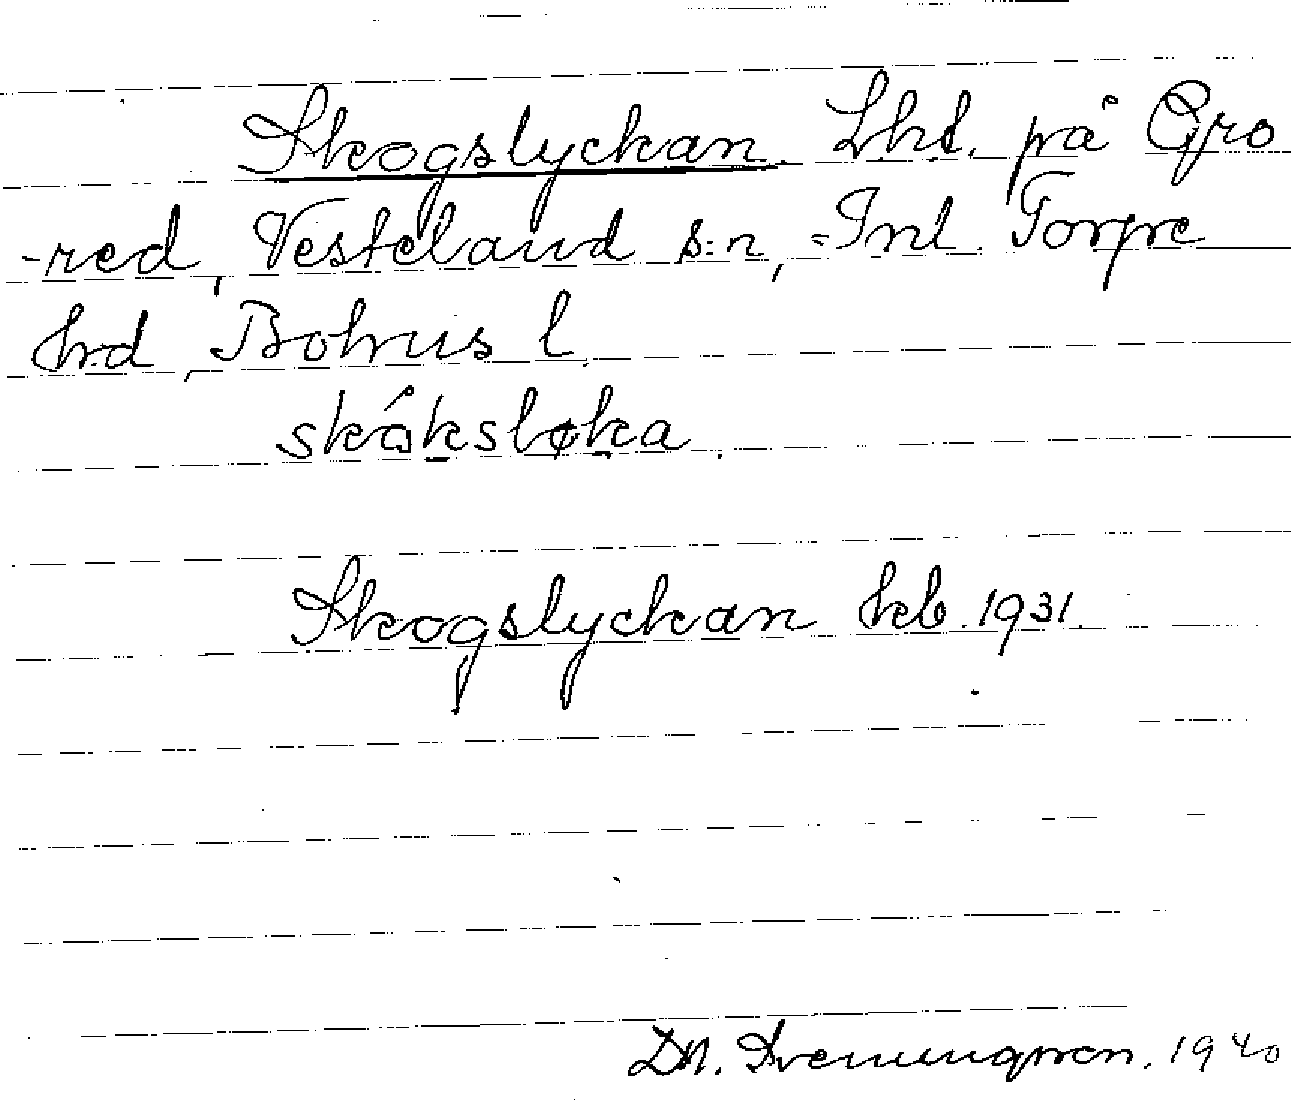 Skogslyckan. Lht. på Gro
-red, Vesteland s:n, Inl. Torpe
hrd, Bohus l.
skåksløka.
Skogslyckan hkb. 1931.
1940